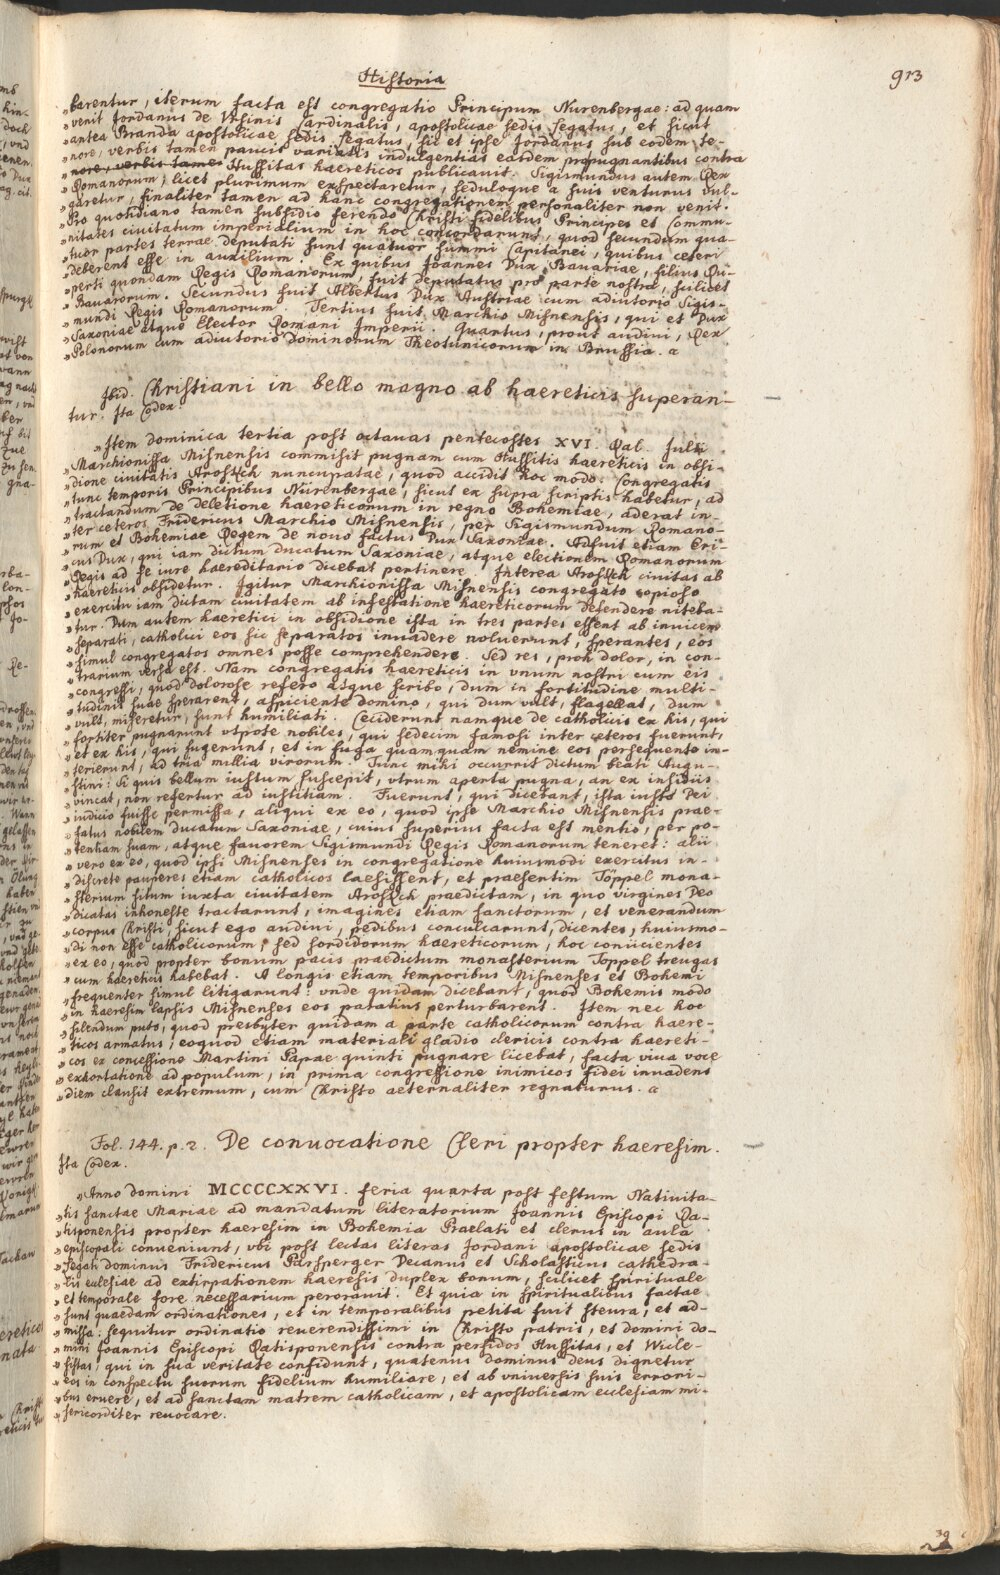 Historia
913
„barentur, iterum facta est congregatio Principum Nurenbergae: ad quam
„venit Jordanus de Vrsinis Cardinalis, apostolicae sedis legatus, et sicut
„antea Branda apostolicae sedis legatus, sic et ipse Jordanus sub eodem te-
„nore, verbis tamen paucis variatis indulgentias easdem propugnantibus contra
„nore, verbis tamen Hussitas haereticos publicauit. Sigismundus autem Rex
„Romanorum, licet plurimum exspectaretur, seduloque a suis venturus vul-
„garetur, finaliter tamen ad hanc congregationem personaliter non venit.
„Pro quotidiano tamen subsidio ferendo Christi fidelibus Principes et Commu-
„nitates ciuitatum imperialium in hoc concordarunt, quod secundum qua-
„tuor partes terrae deputati sunt quatuor summi Capitanei, quibus ceteri
„deberent esse in auxilium. Ex quibus Joannes Dux Bauariae, filius Ru-
„perti quondam Regis Romanorum, fuit deputatus pro parte nostra, scilicet
„Bauarorum. Secundus fuit Albertus Dux Austriae cum adiutorio Sigis-
„mundi Regis Romanorum. Tertius fuit Marchio Misnensis, qui et Dux
„Saxoniae atque Elector Romani Imperii. Quartus, prout audiui, Rex
„Polonorum cum adiutorio dominorum Theotunicorum in Brussia. a
Ibid. Christiani in bello magno ab haereticis superan-
tur. Ita Codex.
„Item dominica tertia post octauas pentecostes XVI. Kal. Julii
„Marchionissa Misnensis commisit pugnam cum Hussitis haereticis in obsi-
„dione ciuitatis Arosch nuncupatae, quod accidit hoc modo. Congregatis
„tunc temporis Principibus Nurenbergae, sicut ex supra scriptis habetur, ad
„tractandum de deletione haereticorum in regno Bohemiae, aderat in-
„ter ceteros Fridericus Marchio Misnensis, per Sigismundum Romano-
„rum et Bohemiae Regem de nouo factus Dux Saxoniae. Adfuit etiam Eri-
„cus Dux, qui iam dictum ducatum Saxoniae, atque electionem Romanorum
„Regis ad se iure haereditario dicebat pertinere. Interea Arosch ciuitas ab
„haereticis obsidetur. Igitur Marchionissa Misnensis congregato copioso
„exercitu iam dictam ciuitatem ab infestatione haereticorum defendere niteba-
„tur. Dum autem haeretici in obsidione ista in tres partes essent ab inuicem
„separati, catholici eos sic separatos inuadere noluerunt, sperantes, eos
„simul congregatos omnes posse comprehendere. Sed res, proh dolor, in con-
„trarium versa est. Nam congregatis haereticis in vnum nostri cum eis
„congressi, quod dolorose refero atque scribo, dum in fortitudine multi-
„tudinis suae sperarent, aspiciente domino, qui dum vult, flagellat, dum
„vult, miseretur, sunt humiliati. Ceciderunt namque de catholicis ex his, qui
„fortiter pugnarunt vtpote nobiles, qui sedecim famosi inter ceteros fuerunt,
„et ex his, qui fugerunt, et in fuga quamquam nemine eos persequente in-
„terierunt, ad tria millia virorum. Tunc mihi occurrit dictum beati Augu-
„stini: Si quis bellum iustum suscepit, vtrum aperta pugna, an ex insidiis
„vincat, non refertur ad iustitiam. Fuerunt, qui dicebant, ista iusto Dei
„iudicio fuisse permissa, aliqui ex eo, quod ipse Marchio Misnensis prae-
„fatus nobilem ducatum Saxoniae, cuius superius facta est mentio, per po-
„tentiam suam, atque fauorem Sigismundi Regis Romanorum teneret: alii
„vero ex eo, quod ipsi Misnenses in congregatione huiusmodi exercitus in-
„discrete pauperes etiam catholicos laesissent, et praesertim Töppel mona-
„sterium situm iuxta ciuitatem Arosch praedictam, in quo virgines Deo
„dicatas inhoneste tractarunt, imagines etiam sanctorum, et venerandum
„corpus Christi, sicut ego audiui, pedibus conculcarunt, dicentes, huiusmo-
„di non esse catholicorum, sed sordidorum haereticorum, hoc coniicientes
„ex eo, quod propter bonum pacis praedictum monasterium Töppel treugas
„cum haereticis habebat. A longis etiam temporibus Misnenses et Bohemi
„frequenter simul litigarunt: vnde quidam dicebant, quod Bohemis modo
„in haeresim lapsis Misnenses eos paratius perturbarent. Item nec hoc
„silendum puto, quod presbyter quidam a parte catholicorum contra haere-
„ticos armatus, eoquod etiam materiali gladio clericis contra haereti-
„cos ex concessione Martini Papae quinti pugnare licebat, facta viua voce
„exhortatione ad populum, in prima congressione inimicos fidei inuadens
„diem clausit extremum, cum Christo aeternaliter regnaturus. a
Fol. 144. p. 2. De conuocatione Cleri propter haeresim.
Ita Codex.
„Anno domini MCCCCXXVI. feria quarta post festum Natiuita-
„tis sanctae Mariae ad mandatum literatorium Joannis Episcopi Ra-
„tisponensis propter haeresim in Bohemia Praelati et clerus in aula
„episcopali conueniunt, vbi post lectas literas Jordani apostolicae sedis
„legati dominus Fridericus Parsperger Decanus et Scholasticus cathedra-
„lis ecclesiae ad extirpationem haeresis duplex bonum, scilicet spirituale
„et temporale fore necessarium perorauit. Et quia in spiritualibus factae
„sunt quaedam ordinationes, et in temporalibus petita fuit steura, et ad-
„missa: sequitur ordinatio reuerendissimi in Christo patris, et domini do-
„mini Joannis Episcopi Ratisponensis contra perfidos Hussitas, et Wicle-
„fistas, qui in sua veritate confidunt, quatenus dominus deus dignetur
„eos in conspectu suorum fidelium humiliare, et ab vniuersis suis errori-
„bus eruere, et ad sanctam matrem catholicam, et apostolicam ecclesiam mi-
„sericorditer reuocare.